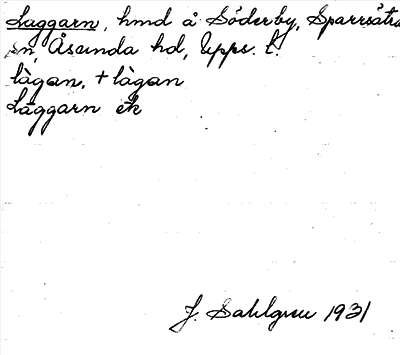 Laggarn, hmd å Söderby, Sparrsätra
sn, Åsunda hd, Upps. l.
làgan, + làgan
Laggarn ek
J. Sahlgren 1931